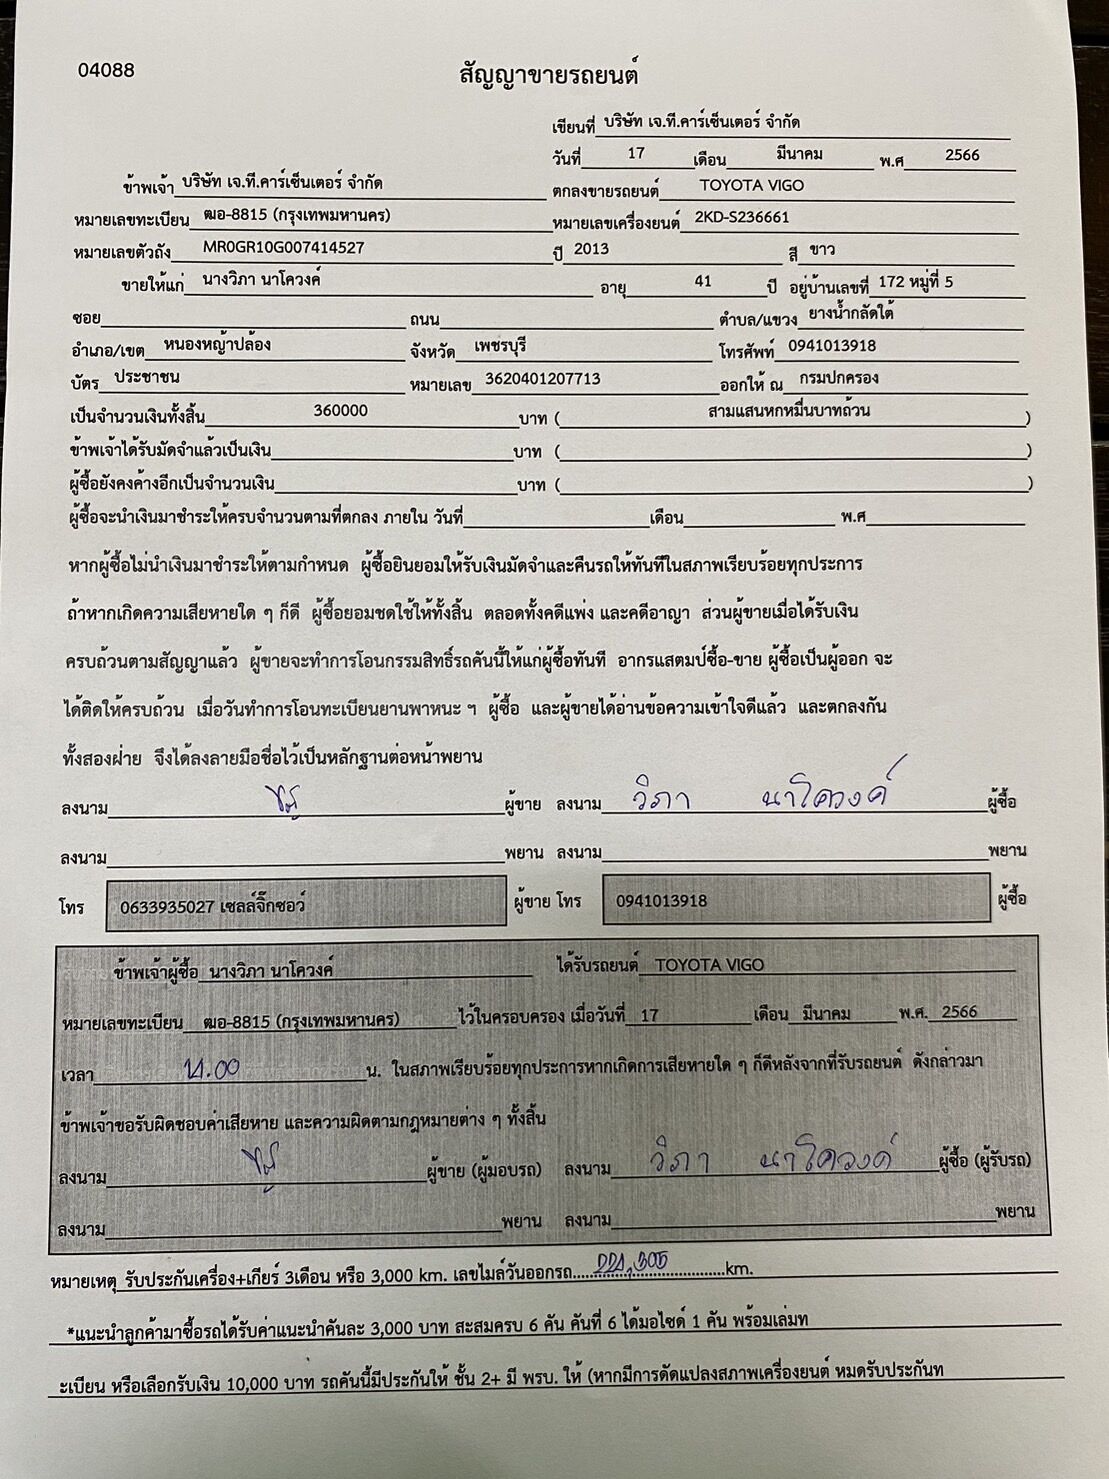 04088
สัญญาขายรถยนต์
เขียนที่ บริษัท เจ.ที.คาร์เซ็นเตอร์ จำกัด
วันที่ 17 เดือน มีนาคม พ.ศ 2566
ข้าพเจ้า บริษัท เจ.ที.คาร์เซ็นเตอร์ จำกัด ตกลงขายรถยนต์ TOYOTA VIGO
หมายเลขทะเบียน ฒอ-8815 (กรุงเทพมหานคร) หมายเลขเครื่องยนต์ 2KD-S236661
หมายเลขตัวถัง MR0GR10G007414527 ปี 2013 สี ขาว
ขายให้แก่ นางวิภา นาโควงค์ อายุ 41 ปี อยู่บ้านเลขที่ 172 หมู่ที่ 5
ซอย ถนน ตำบล/แขวง ยางน้ำกลัดใต้
อำเภอ/เขต หนองหญ้าปล้อง จังหวัด เพชรบุรี โทรศัพท์ 0941013918
บัตร ประชาชน หมายเลข 3620401207713 ออกให้ ณ กรมปกครอง
เป็นจำนวนเงินทั้งสิ้น 360000 บาท ( สามแสนหกหมื่นบาทถ้วน )
ข้าพเจ้าได้รับมัดจำแล้วเป็นเงิน บาท ( )
ผู้ซื้อยังคงค้างอีกเป็นจำนวนเงิน บาท ( )
ผู้ซื้อจะนำเงินมาชำระให้ครบจำนวนตามที่ตกลง ภายใน วันที่ เดือน พ.ศ
หากผู้ซื้อไม่นำเงินมาชำระให้ตามกำหนด ผู้ซื้อยินยอมให้รับเงินมัดจำและคืนรถให้ทันทีในสภาพเรียบร้อยทุกประการ
ถ้าหากเกิดความเสียหายใด ๆ ก็ดี ผู้ซื้อยอมชดใช้ให้ทั้งสิ้น ตลอดทั้งคดีแพ่ง และคดีอาญา ส่วนผู้ขายเมื่อได้รับเงิน
ครบถ้วนตามสัญญาแล้ว ผู้ขายจะทำการโอนกรรมสิทธิ์รถคันนี้ให้แก่ผู้ซื้อทันที อากรแสตมป์ซื้อ-ขาย ผู้ซื้อเป็นผู้ออก จะ
ได้ติดให้ครบถ้วน เมื่อวันทำการโอนทะเบียนยานพาหนะ ฯ ผู้ซื้อ และผู้ขายได้อ่านข้อความเข้าใจดีแล้ว และตกลงกัน
ทั้งสองฝ่าย จึงได้ลงลายมือชื่อไว้เป็นหลักฐานต่อหน้าพยาน
ลงนาม ผู้ขาย ลงนาม วิภา นาโควงค์ ผู้ซื้อ
ลงนาม พยาน ลงนาม พยาน
โทร 0633935027 เซลล์จิ๊กซอว์ ผู้ขาย โทร 0941013918 ผู้ซื้อ
ข้าพเจ้าผู้ซื้อ นางวิภา นาโควงค์ ได้รับรถยนต์ TOYOTA VIGO
หมายเลขทะเบียน ฒอ-8815 (กรุงเทพมหานคร) ไว้ในครอบครอง เมื่อวันที่ 17 เดือน มีนาคม พ.ศ. 2566
เวลา 14.00 น. ในสภาพเรียบร้อยทุกประการหากเกิดการเสียหายใด ๆ ก็ดีหลังจากที่รับรถยนต์ ดังกล่าวมา
ข้าพเจ้าขอรับผิดชอบค่าเสียหาย และความผิดตามกฎหมายต่าง ๆ ทั้งสิ้น
ลงนาม ผู้ขาย (ผู้มอบรถ) ลงนาม วิภา นาโควงค์ ผู้ซื้อ (ผู้รับรถ)
ลงนาม พยาน ลงนาม พยาน
หมายเหตุ รับประกันเครื่อง+เกียร์ 3เดือน หรือ 3,000 km. เลขไมล์วันออกรถ 221,305 km.
*แนะนำลูกค้ามาซื้อรถได้รับค่าแนะนำคันละ 3,000 บาท สะสมครบ 6 คัน คันที่ 6 ได้มอไซด์ 1 คัน พร้อมเล่มท
ะเบียน หรือเลือกรับเงิน 10,000 บาท รถคันนี้มีประกันให้ ชั้น 2+ มี พรบ. ให้ (หากมีการดัดแปลงสภาพเครื่องยนต์ หมดรับประกันท